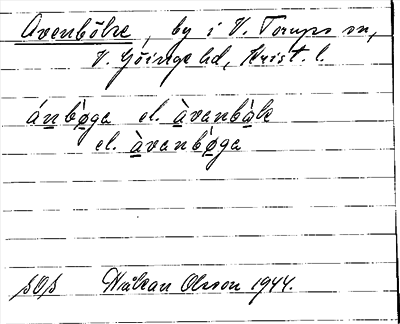 Avenböke, by i V. Torups sn,
V. Göinge hd, Krist. l.
ánbǿga el. àvanbȧ̀k
el. àvanbø̀ga
SOS Håkan Olsson 1944.